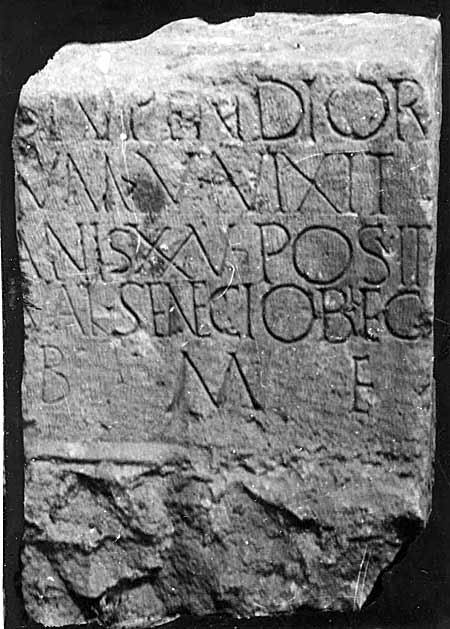 STVPENDIOR
VM·V·VIXIT
ANIS XXV·POSIT
VAL·SENECIO B·EQ
B M F